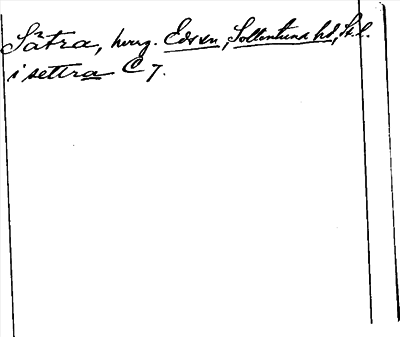 Sätra, herrg. Edsxn, Sollentuna hd, St. l.
i settra C 7.